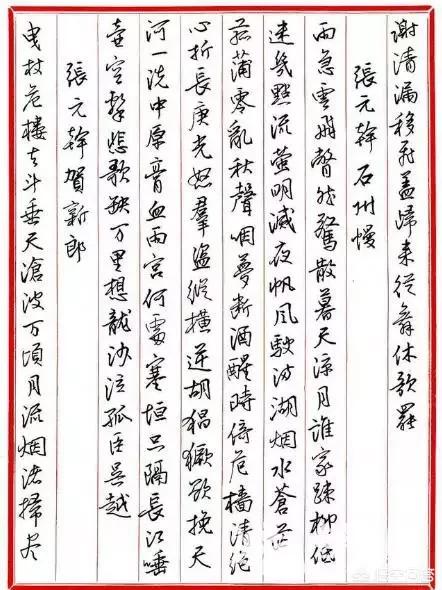 謝清漏移飛盖歸來從舞休歌罷
張元幹 石州慢
雨急雲飛瞥然驚散暮天涼月誰家疎柳低
迷幾點流螢明滅夜帆風駛滿湖烟水蒼茫
菰蒲零亂秋聲咽夢斷酒醒時倚危檣清絕
心折長庚光怒羣盜縱橫逆胡猖獗欲挽天
河一洗中原膏血兩宮何處塞垣只隔長江唾
壺空擊悲歌缺万里想龍沙泣孤臣吳越
張元幹賀新郎
曳杖危樓去斗垂天滄波万頃月流烟渚掃尽